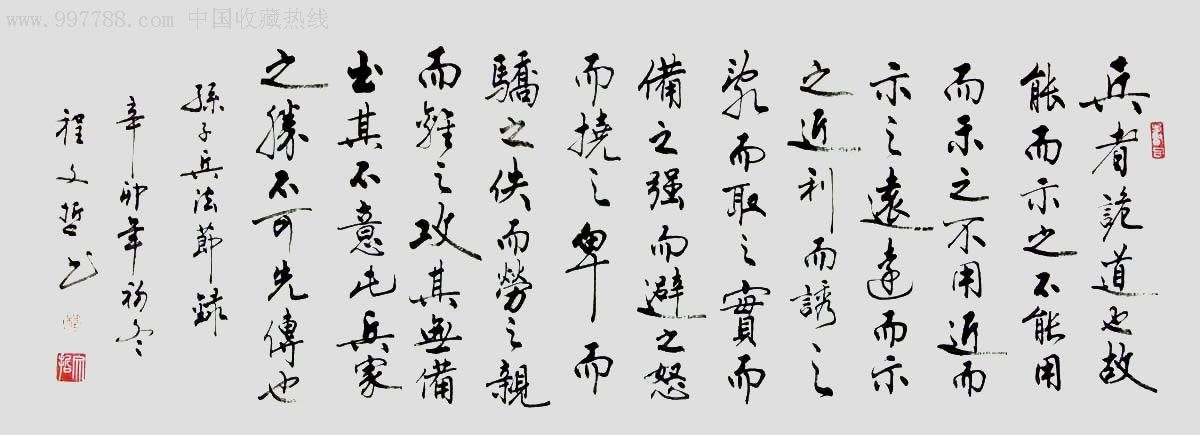 www.997788.com 中国收藏热线
兵者詭道也故
能而示之不能用
而示之不用近而
示之遠遠而示
之近利而誘之
亂而取之實而
備之强而避之怒
而撓之卑而
驕之佚而勞之親
而離之攻其無備
出其不意此兵家
之勝不可先傳也
孫子兵法節録
辛卯年初冬
程文哲书